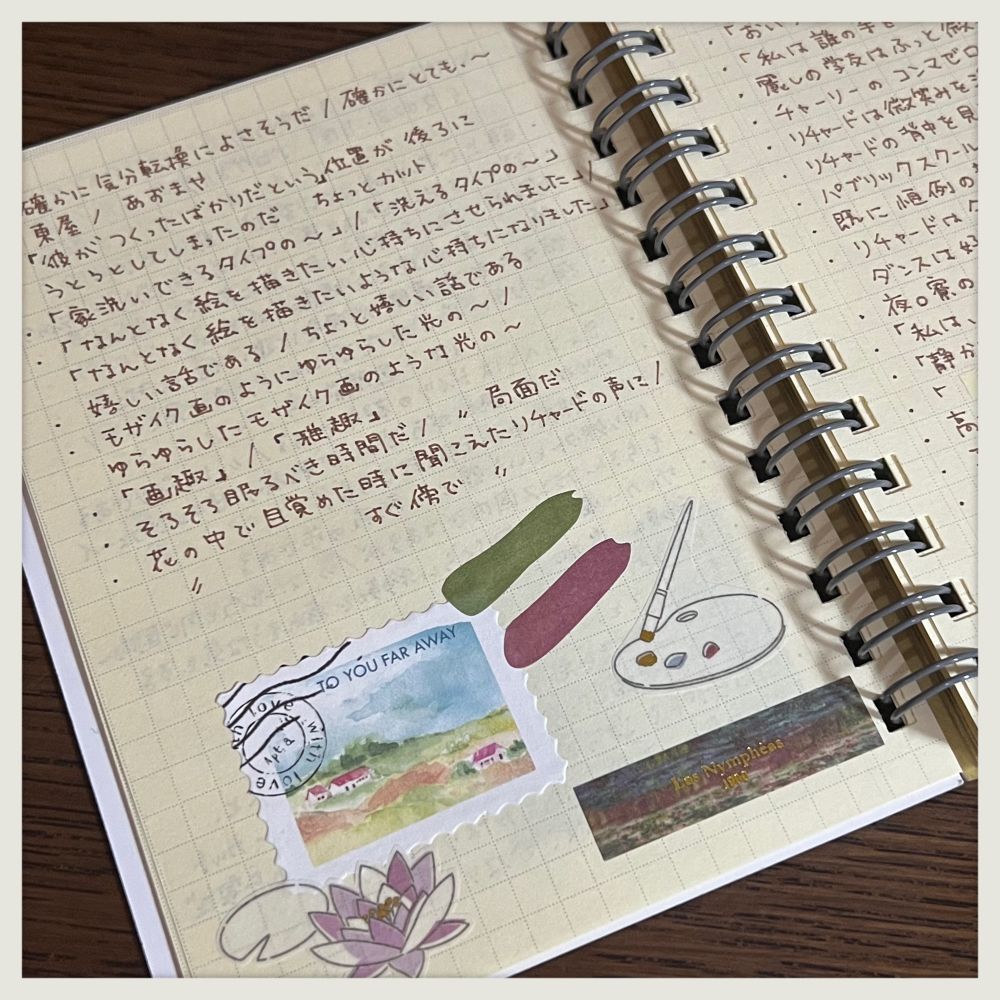 確かに気分転換によさそうだ / 確かにとても、～
東屋 / あおまや
「彼がつくったばかりだという」位置が後ろに
うとうとしてしまったのだ ちょっとカット
・「家洗いできるタイプの～」/「洗えるタイプの～」
・「なんとなく絵を描きたい心持ちにさせられました」/
「なんとなく絵を描きたいような心持ちになりました」
・嬉しい話である / ちょっと嬉しい話である
・モザイク画のようにゆらゆらした光の～ /
ゆらゆらしたモザイク画のような光の～
・「画趣」 / 「雅趣」
・そろそろ眠るべき時間だ / 〃 局面だ
・花の中で目覚めた時に聞こえたリチャードの声に /
〃 すぐ傍で 〃
TO YOU FAR AWAY
with love
Apt.a
with love
Les Nymphéas
・「私は誰の手
麗しの学友はふっと微
チャーリーのコンマで
・リチャードは微笑みを
・リチャードの背中を見
パブリックスクール
・既に慣例の
・リチャードは
ダンスは
・夜。寮の
・「私は、
・「静か
・「
・高